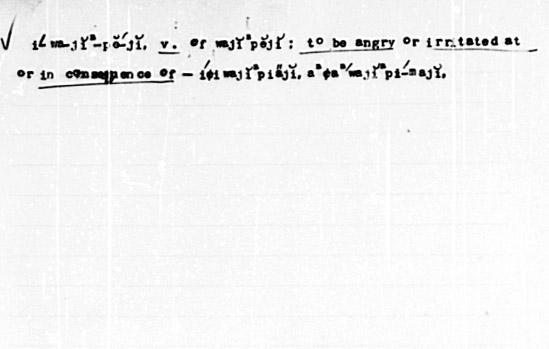 √ íʹ wa-jĭⁿ-pĭ-jĭ, v. of wajĭⁿpĕjĭ: to be angry or irritated at
or in consequence of — íɸiwajĭⁿpiăjĭ, aⁿɸaⁿ′wajĭⁿpi-majĭ,